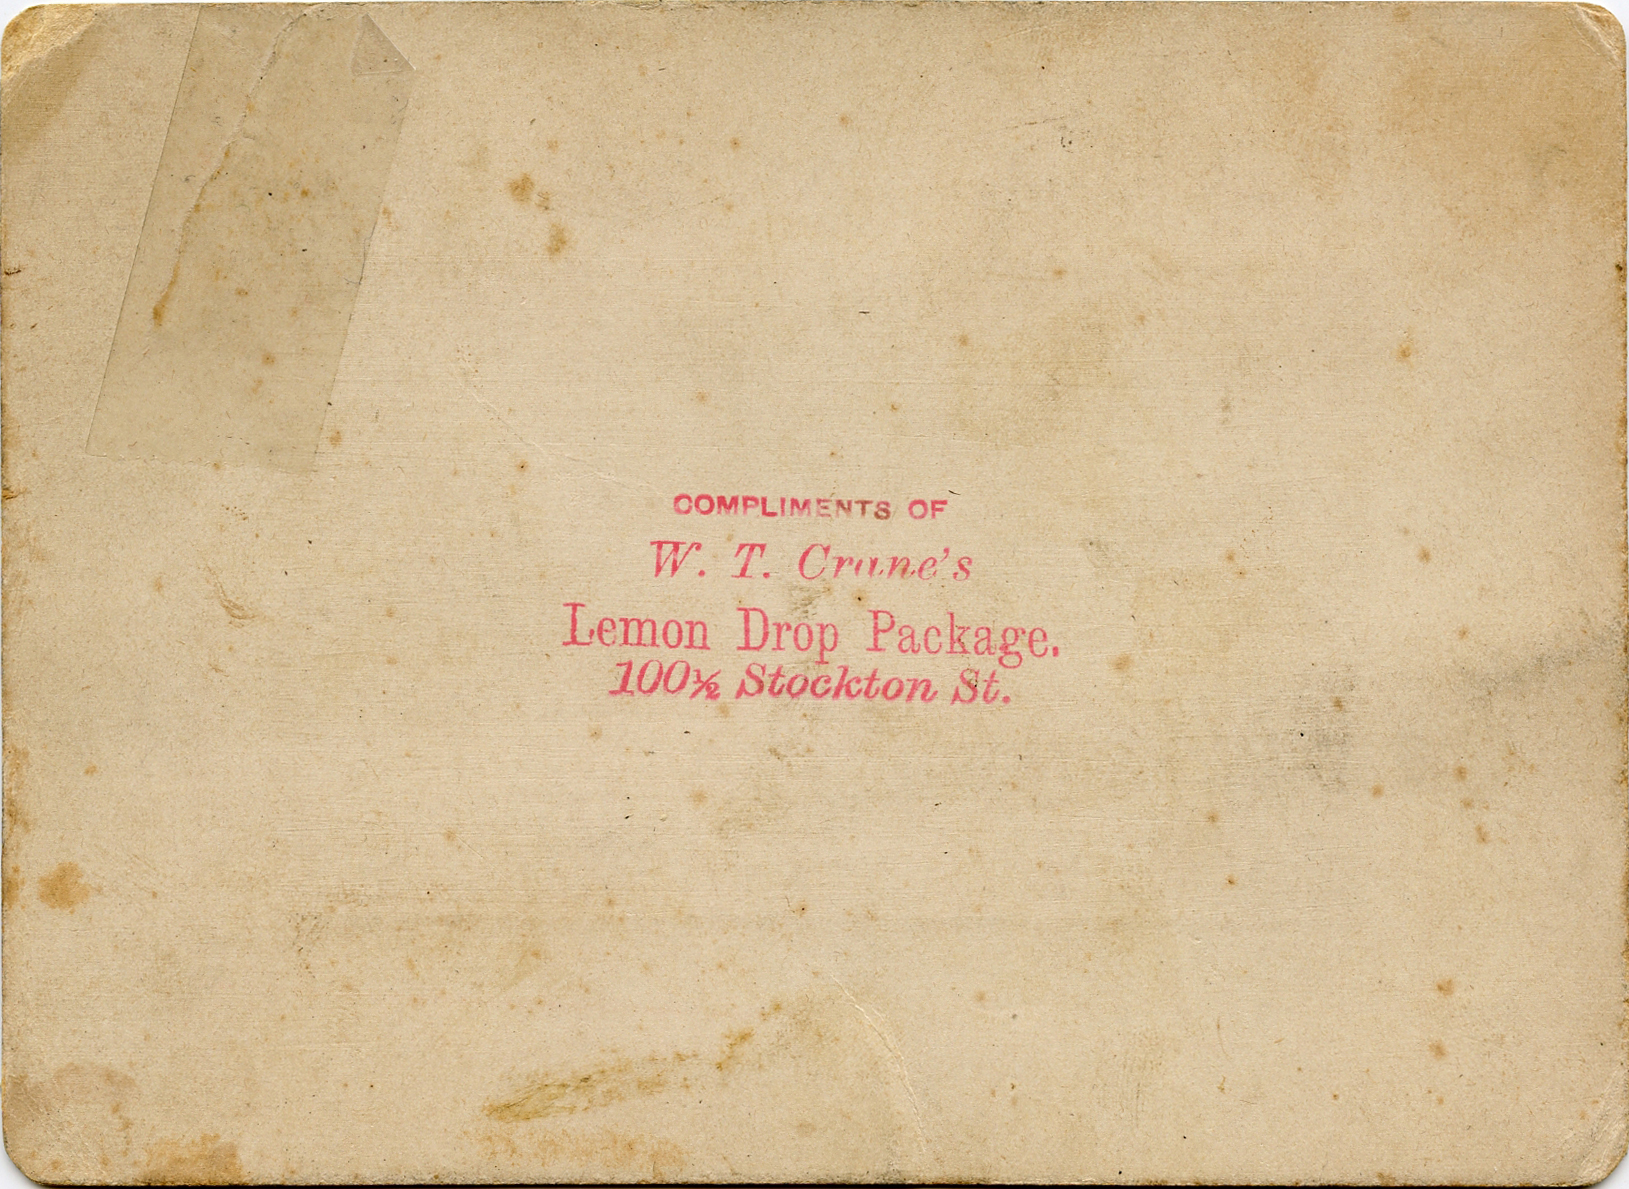 COMPLIMENTS OF
W. T. Crane's
Lemon Drop Package.
100½ Stockton St.